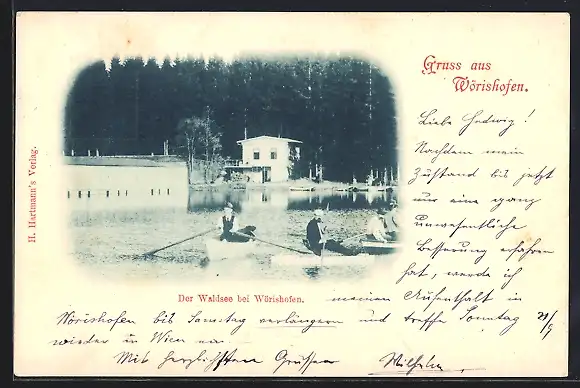 Gruss aus
Wörishofen.
H. Hartmann's Verlag.
Liebe Hedwig!
Nachdem mein
Zustand bis jetzt
nur eine ganz
unwesentliche
Besserung erfahren
hat, werde ich
Der Waldsee bei Wörishofen.
meinen Aufenthalt in
Wörishofen bis Samstag verlängern und treffe Sonntag 24/9
wieder in Wien ein.
Mit herzlichsten Grüssen Wilhelm